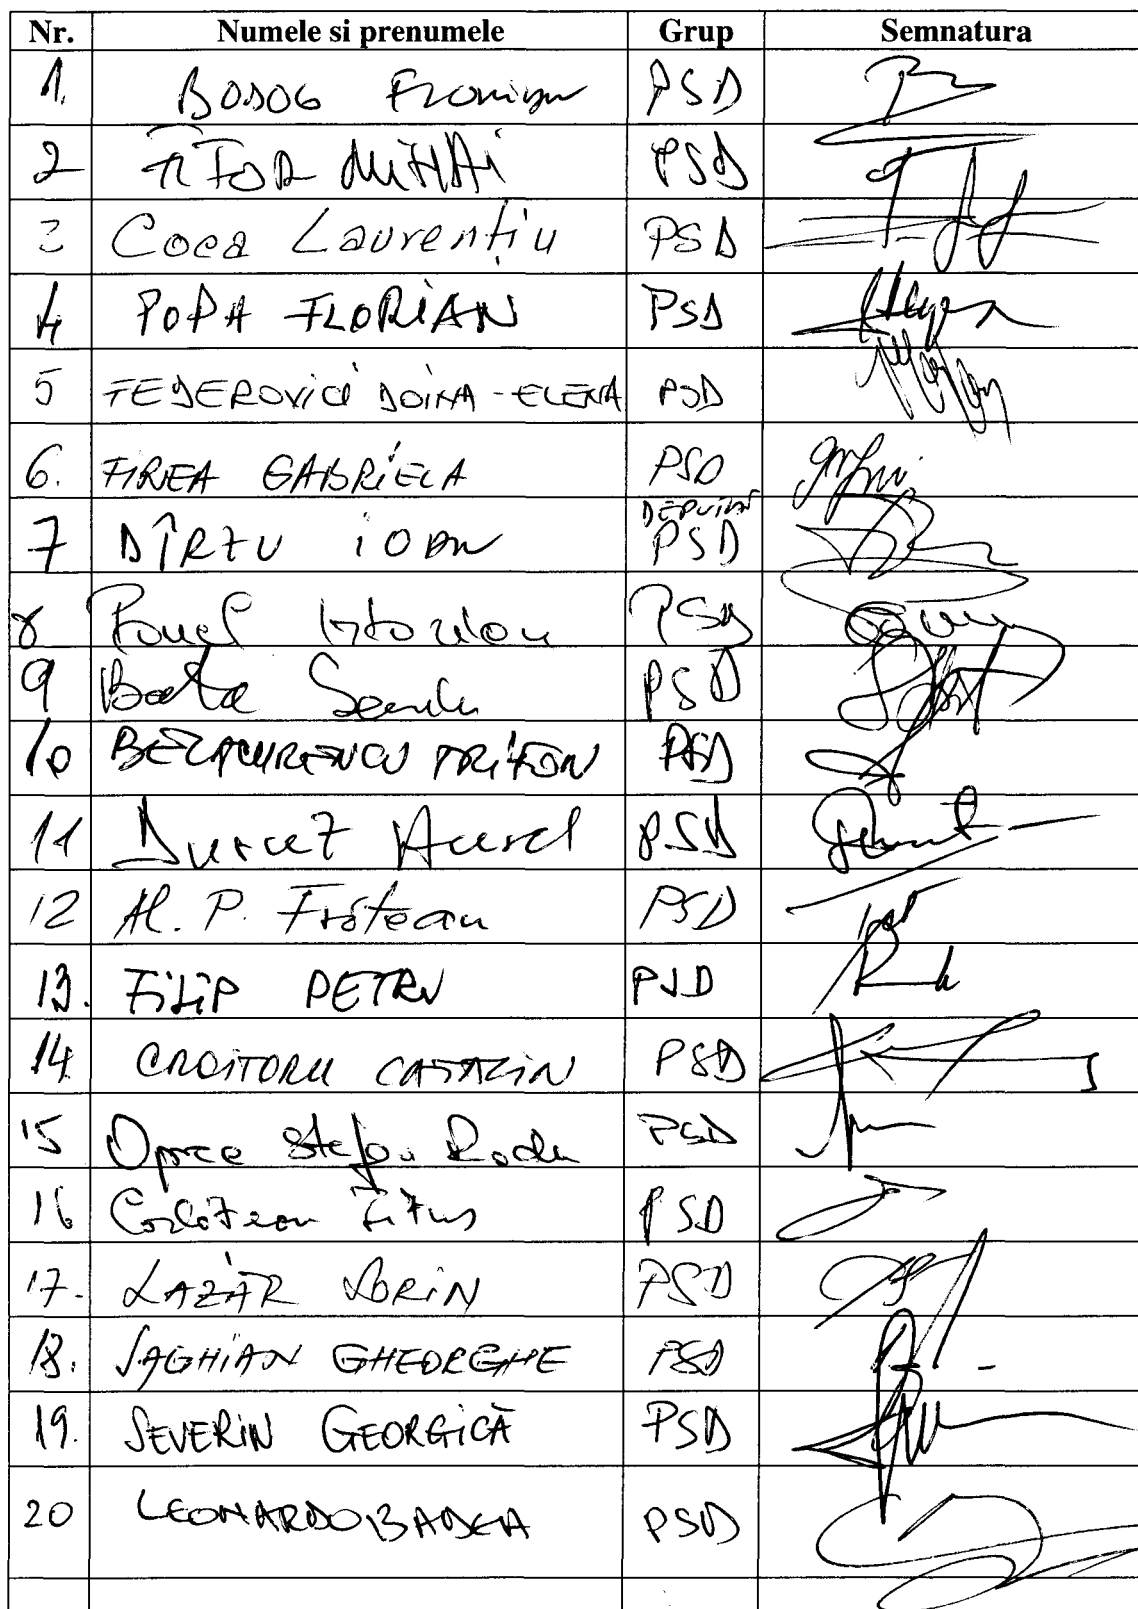 Nr. Numele si prenumele Grup Semnatura
1. BODOG Florian PSD
2 FIFOR MIHAI PSD
3 Coca Laurențiu PSD
4 POPA FLORIAN PSD
5 FEDEROVICI DOINA-ELENA PSD
6. FIREA GABRIELA PSD
DEPUTAT
7 DÎRZU IOAN PSD
8 PSD
9 PSD
10 TRIFON PSD
11 Aurel PSD
12 Al. P. Frăteanu PSD
13. FILIP PETRU PSD
14. CROITORU CATALIN PSD
15 Oprea Stefan Radu PSD
16 Corlățean Titus PSD
17. LAZĂR SORIN PSD
18. SAGHIAN GHEORGHE PSD
19. SEVERIN GEORGICĂ PSD
20 LEONARDO BADEA PSD